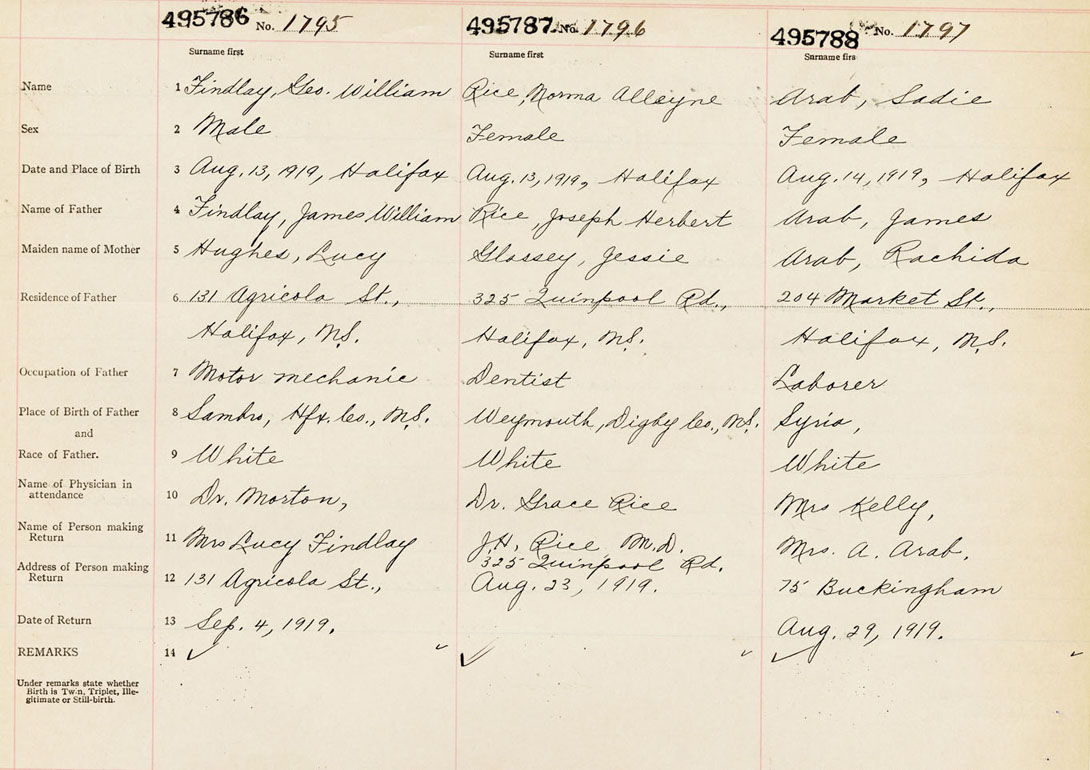 495786 No. 1795 495787 No. 1796 495788 No. 1797
Surname first Surname first Surname firs
Name 1 Findlay, Geo. William Rice, Norma Alleyne Arab, Sadie
Sex 2 Male Female Female
Date and Place of Birth 3 Aug. 13, 1919, Halifax Aug. 13, 1919, Halifax Aug. 14, 1919, Halifax
Name of Father 4 Findlay, James William Rice, Joseph Herbert Arab, James
Maiden name of Mother 5 Hughes, Lucy Glassey, Jessie Arab, Rachida
Residence of Father 6 131 Agricola St., 325 Quinpool Rd., 204 Market St.,
Halifax, N.S. Halifax, N.S. Halifax, N.S.
Occupation of Father 7 Motor mechanic Dentist Laborer
Place of Birth of Father 8 Sambro, Hfx. Co., N.S. Weymouth, Digby Co., N.S. Syria,
and
Race of Father. 9 White White White
Name of Physician in
attendance 10 Dr. Morton, Dr. Grace Rice Mrs Kelly,
Name of Person making
Return 11 Mrs Lucy Findlay J.H. Rice M.D. Mrs. A. Arab,
325 Quinpool Rd.
Address of Person making
Return 12 131 Agricola St., Aug. 23, 1919. 75 Buckingham
Date of Return 13 Sep. 4, 1919. Aug. 29, 1919.
REMARKS 14
Under remarks state whether
Birth is Twin, Triplet, Ille-
gitimate or Still-birth.